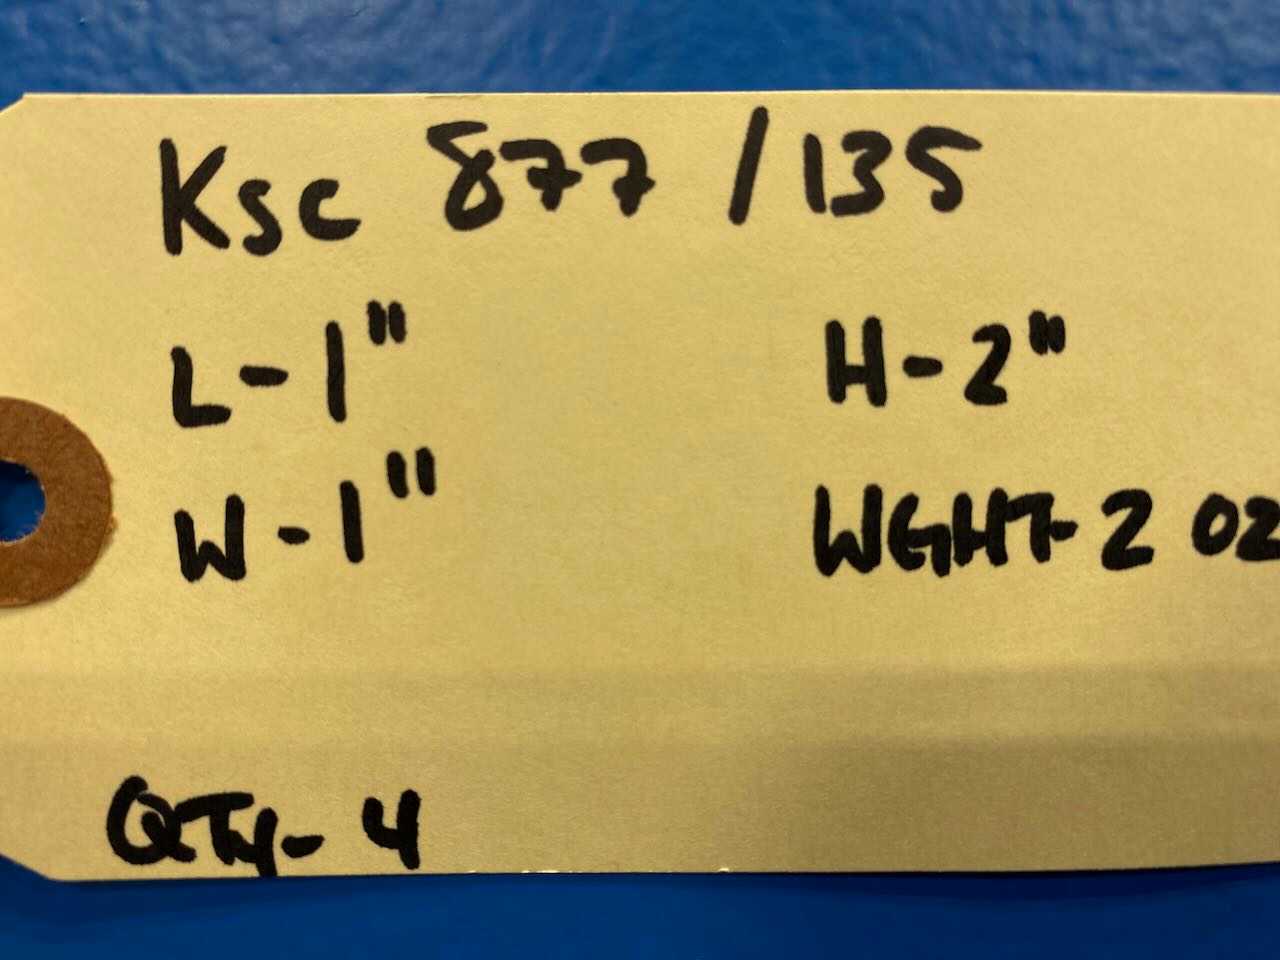 Ksc 877 / 135
L-1" H-2"
W-1" WGHT-2 oz
QTy-4